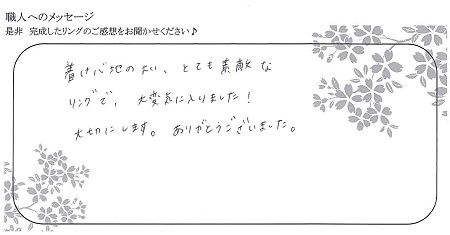 職人へのメッセージ
是非 完成したリングのご感想をお聞かせください♪
着け心地の良い、とても素敵な
リングで、大変気に入りました！
大切にします。ありがとうございました。